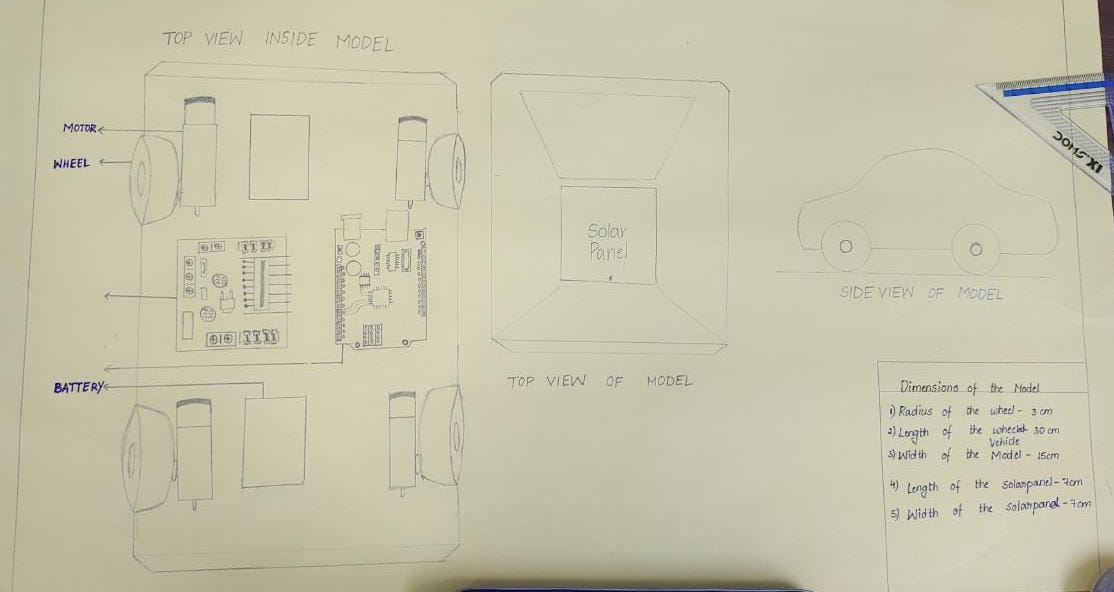 TOP VIEW INSIDE MODEL
MOTOR
WHEEL
BATTERY
Solar
Panel
TOP VIEW OF MODEL
SIDE VIEW OF MODEL
DOMS
Dimensions of the Model
1) Radius of the wheel - 3 cm
2) Length of the 30 cm
Vehicle
3) Width of the Model - 15cm
4) Length of the Solarpanel - 7cm
5) Width of the solarpanel - 7cm